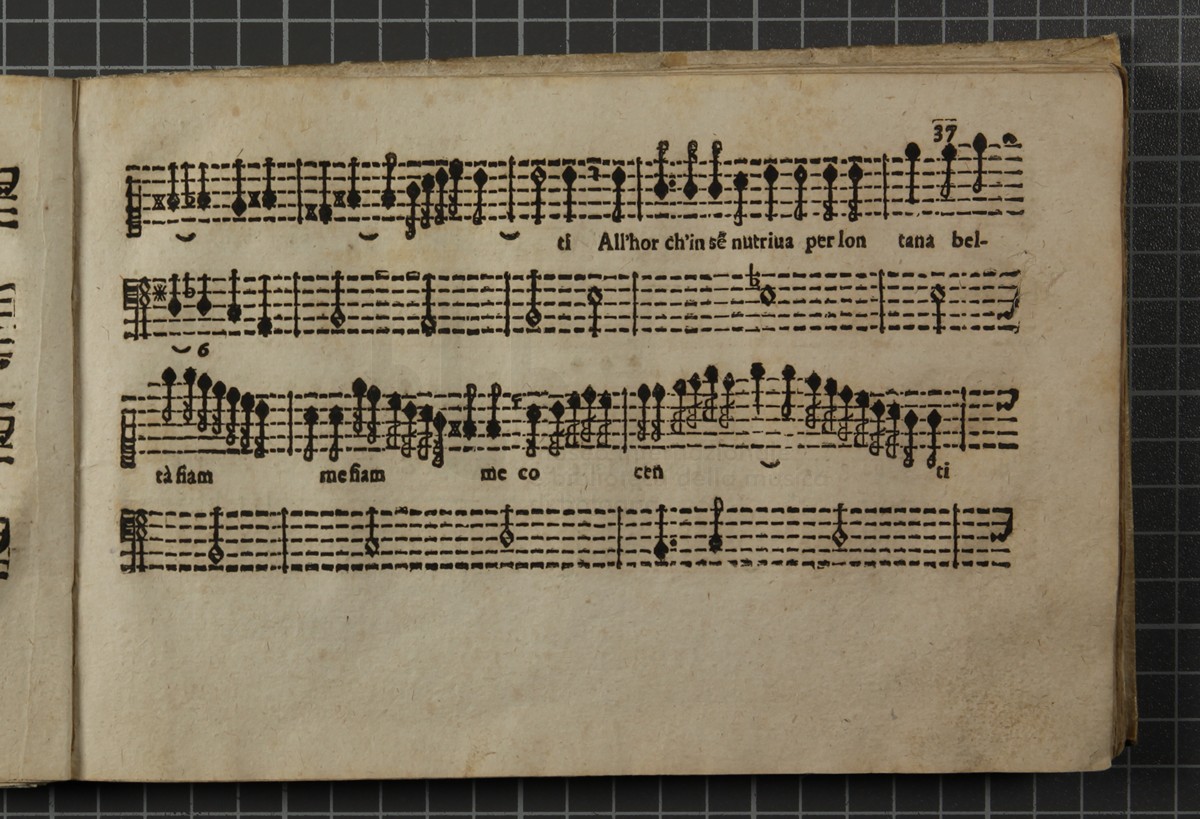 37
ti All'hor ch'in sẽ nutriua per lon tana bel-
6
tà fiam me fiam me co cen ti